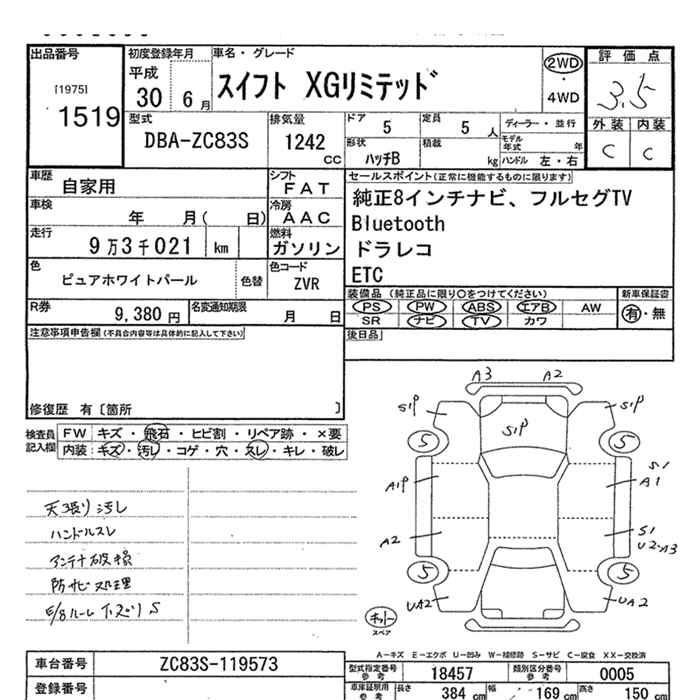 出品番号
[1975]
1519
初度登録年月
平成
30 6 月
車名・グレード
スイフト XGリミテッド
2WD
・
4WD
評価点
3.5
外装 内装
C C
型式
DBA-ZC83S
排気量
1242
CC
ドア 5
定員 5 人
ディーラー・並行
形状
ハッチB
積載 kg
モデル年式 年
ハンドル 左・右
車歴
自家用
シフト
FAT
車検
年 月( 日)
冷房
AAC
走行
9万3千021 km
燃料
ガソリン
色
ピュアホワイトパール
色替
色コード
ZVR
セールスポイント(正常に機能するものに限ります)
純正8インチナビ、フルセグTV
Bluetooth
ドラレコ
ETC
R券
9,380 円
名変通知期限
月 日
装備品 (純正品に限り○をつけてください)
PS PW ABS エアB AW
SR ナビ TV カワ
新車保証書
有・無
注意事項申告欄(不具合内容等は具体的に記入して下さい)
修復歴 有〔箇所 〕
後日品
検査員
記入欄
FW キズ・飛石・ヒビ割・リペア跡・×要
内装:キズ・汚レ・コゲ・穴・スレ・キレ・破レ
天張り汚レ
ハンドルスレ
アンテナ破損
防サビ処理
A3 A2
S1P S1P
S1P
5 5
A1P
S1
A1
A2
S1
U2・A3
5 5
UA2 UA2
スペア
A-キズ E-エクボ U-凹み W-補修跡 S-サビ C-腐食 XX-交換済
車台番号
ZC83S-119573
登録番号
型式指定番号
参考
18457
類別区分番号
参考
0005
車庫証明用
参考
長さ 384 cm 幅 169 cm 高さ 150 cm